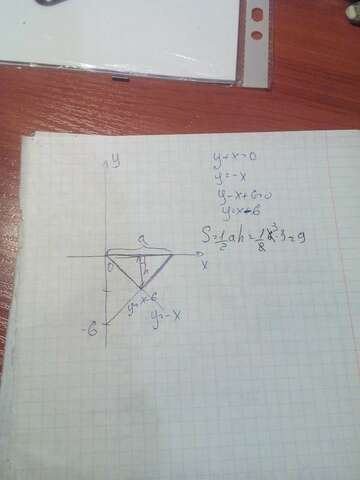 y
y+x=0
y=-x
y-x+6=0
y=x-6
a
S=1/2ah=1/2·3=9
0
h
x
y=x-6
y=-x
-6